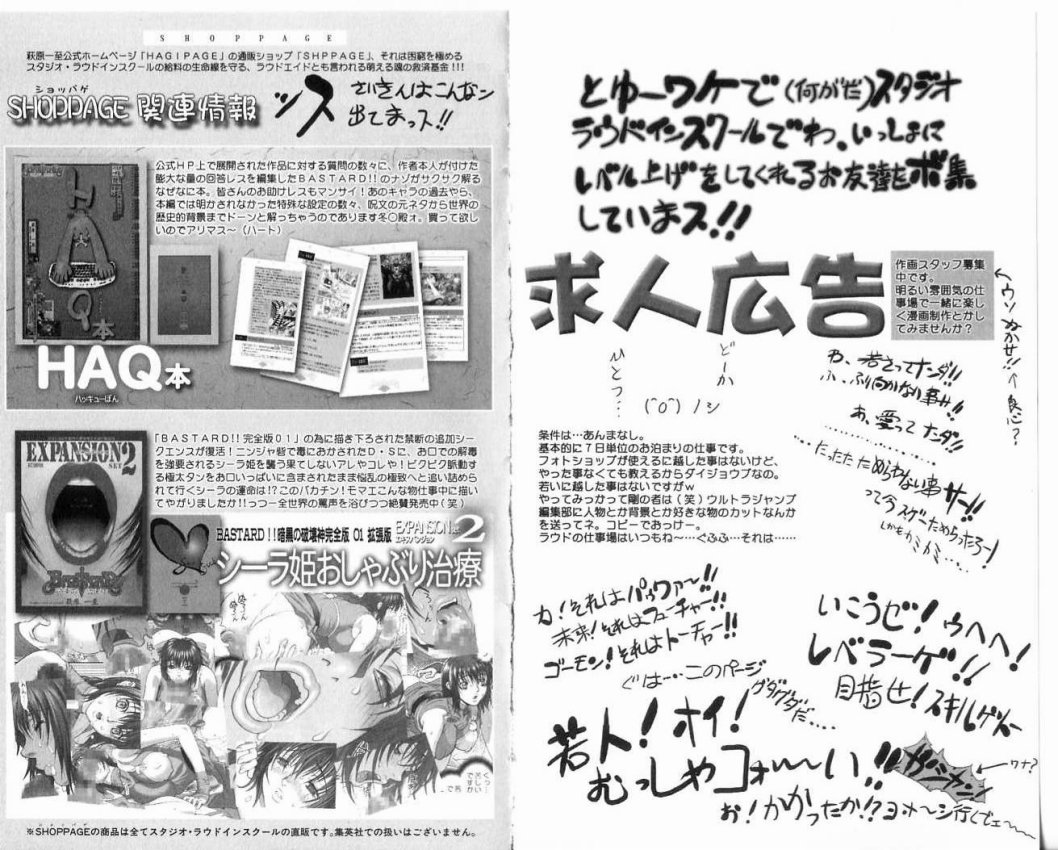 SHOPPAGE
萩原一至公式ホームページ「HAGIPAGE」の通販ショップ「SHPPAGE」、それは困窮を極める
スタジオ・ラウドインスクールの給料の生命線を守る、ラウドエイドとも言われる萌える魂の救済基金!!!
ショッパゲ
SHOPPAGE 関連情報
ッス
さいきんはこんなン
出てまっス!!
公式HP上で展開された作品に対する質問の数々に、作者本人が付けた
膨大な量の回答レスを編集したBASTARD!!のナゾがサクサク解る
なぜなに本。皆さんのお助けレスもマンサイ!あのキャラの過去やら、
本編では明かされなかった特殊な設定の数々、呪文の元ネタから世界の
歴史的背景までドーンと解っちゃうのであります冬〇殿ォ。買って欲し
いのでアリマス〜(ハート)
HAQ本
HAQ本
ハッキューぼん
EXPANSION2
「BASTARD!!完全版01」の為に描き下ろされた禁断の追加シー
クエンスが復活!ニンジャ砦で毒におかされたD・Sに、お口での解毒
を強要されるシーラ姫を襲う果てしないアレやコレや!ビクビク脈動す
る極太タンをお口いっぱいに含まされたまま悩乱の極致へと追い詰めら
れて行くシーラの運命は!?このバカチン!モマエこんな物仕事中に描い
てやがりましたか!!っつー全世界の罵声を浴びつつ絶賛発売中(笑)
BASTARD!!暗黒の破壊神完全版 01 拡張版
EXPANSION SET 2
エキスパンジョン
シーラ姫おしゃぶり治療
※SHOPPAGEの商品は全てスタジオ・ラウドインスクールの直販です。集英社での扱いはございません。
とゆーワケで(何がだ)スタジオ
ラウドインスクールでわ、いっしょに
レベル上げをしてくれるお友達をボ集
していまス!!
求人広告
作画スタッフ募集
中です。
明るい雰囲気の仕
事場で一緒に楽し
く漫画制作とかし
てみませんか?
ウソぬかせ!!
←良心?
どーか
ひとつ…
(^o^)ノシ
わ、若さってナンダ!!
ふ、ふり向かない事サ!!
あ、愛ってナンダ!!
条件は…あんまなし。
基本的に7日単位のお泊まりの仕事です。
フォトショップが使えるに越した事はないけど、
やった事なくても教えるからダイジョウブなの。
若いに越した事はないですがw
やってみっかって剛の者は(笑)ウルトラジャンプ
編集部に人物とか背景とか好きな物のカットなんか
を送ってネ。コピーでおっけー。
ラウドの仕事場はいつもね〜…ぐふふ…それは……
力!それはパゥワァー!!
未来!それはフューチャー!!
ゴーモン!それはトーチャー!!
ぐは…このページ
グダグダだ…
いこうゼ!ウヘヘ!
レベラーゲ!!
目指せ!スキルゲッター
若人!オイ!
むっしゃコォ〜〜い!!
ガシャン
←ワナ?
お!かかったか!?